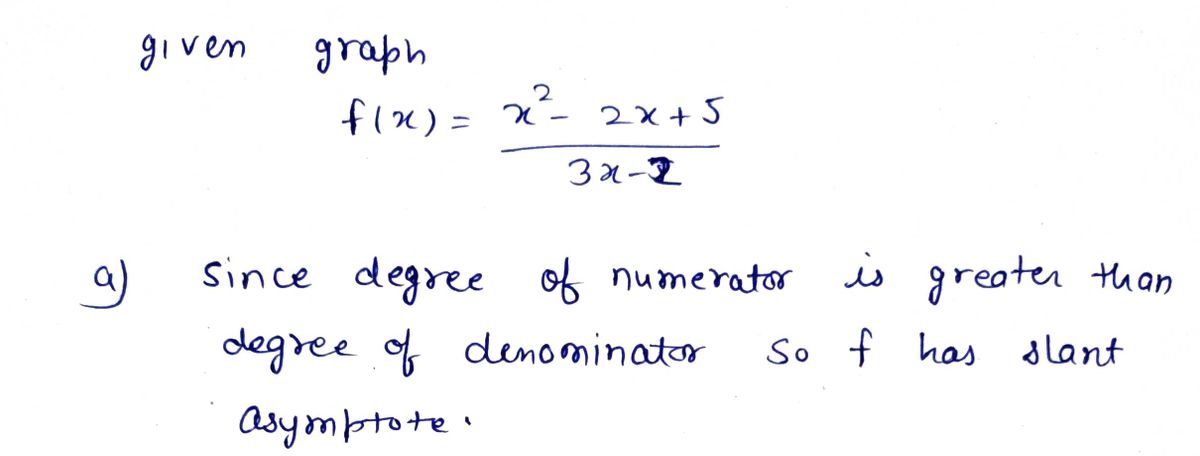 given graph
f(x) = x² - 2x + 5
3x - 2
a) Since degree of numerator is greater than
degree of denominator so f has slant
asymptote.